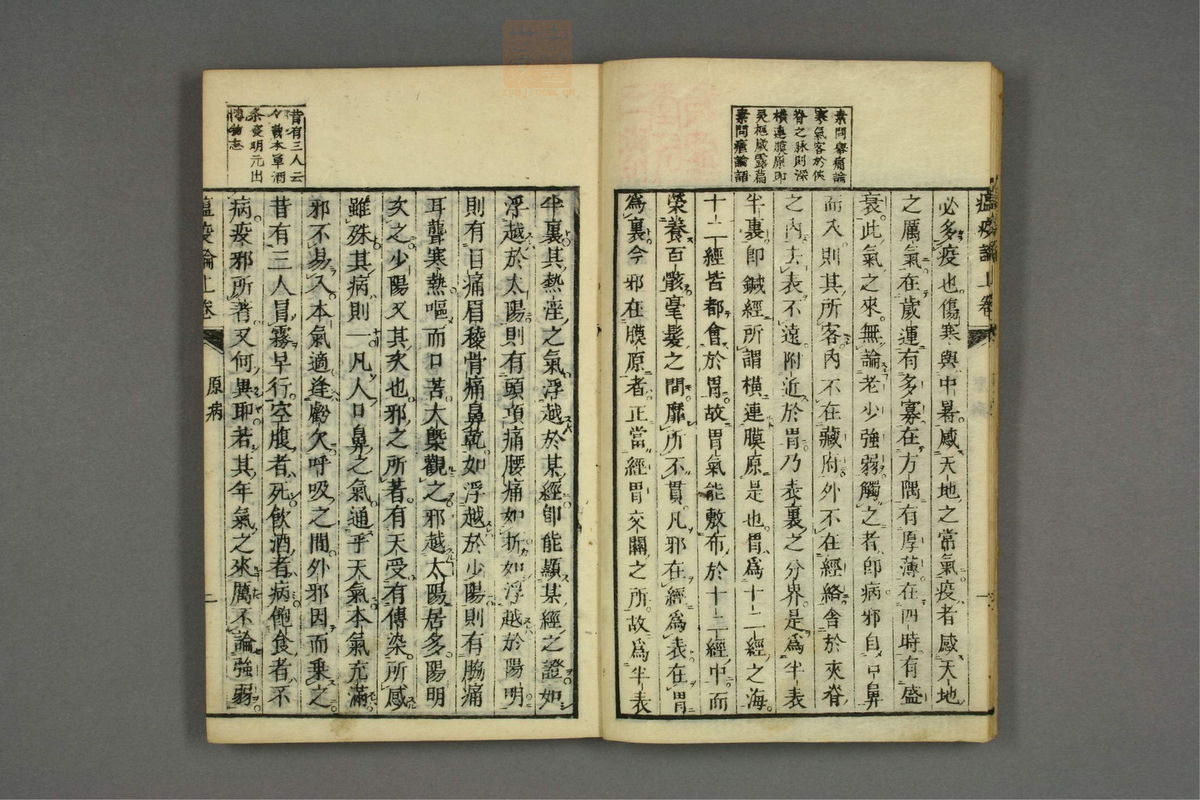 素問舉痛論
寒氣客於俠
脊之脉則深
橫連膜原即
靈樞歲露篇
素問瘧論語
瘟疫論上卷
必多疫也傷寒與中暑感天地之常氣疫者感天地
之厲氣在歲運有多寡在方隅有厚薄在四時有盛
衰此氣之來無論老少強弱觸之者即病邪自口鼻
而入則其所客内不在藏府外不在經絡舍於夾脊
之内去表不遠附近於胃乃表裏之分界是爲半表
半裏即鍼經所謂橫連膜原是也胃爲十二經之海
十二經皆都會於胃故胃氣能敷布於十二經中而
榮養百骸毫髮之間靡所不貫凡邪在經爲表在胃
爲裏今邪在膜原者正當經胃交關之所故爲半表
昔有三人云
々載本草酒
条王明元出
博物志
半裏其熱淫之氣浮越於某經即能顯某經之證如
浮越於太陽則有頭項痛腰痛如折如浮越於陽明
則有目痛眉稜骨痛鼻乾如浮越於少陽則有脇痛
耳聾寒熱嘔而口苦大槩觀之邪越太陽居多陽明
次之少陽又其次也邪之所著有天受有傳染所感
雖殊其病則一凡人口鼻之氣通乎天氣本氣充滿
邪不易入本氣適逢虧欠呼吸之間外邪因而乘之
昔有三人冒霧早行空腹者死飲酒者病飽食者不
病疫邪所著又何異耶若其年氣之來厲不論強弱
瘟疫論上卷
原病